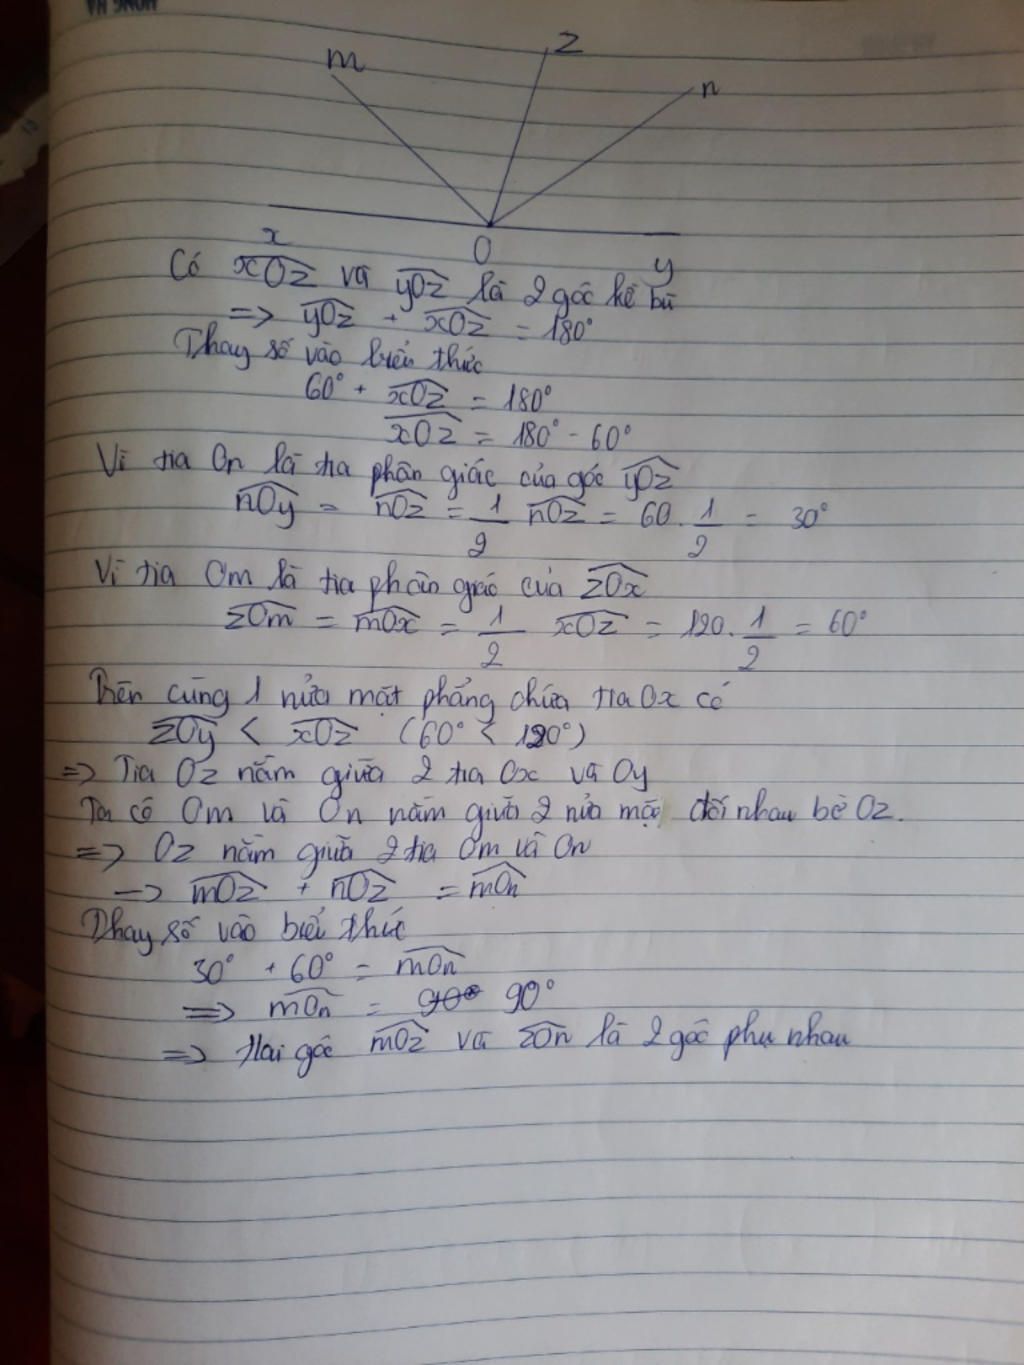 m
z
n
x
O
y
Có xOz và yOz là 2 góc kề bù
=> yOz + xOz = 180°
Thay số vào biểu thức
60° + xOz = 180°
xOz = 180° - 60°
Vì tia On là tia phân giác của góc yOz
nOy = nOz = 1/2 nOz = 60 . 1/2 = 30°
Vì tia Om là tia phân giác của zOx
zOm = mOx = 1/2 xOz = 120 . 1/2 = 60°
Trên cùng 1 nửa mặt phẳng chứa tia Ox có
zOy < xOz (60° < 120°)
=> Tia Oz nằm giữa 2 tia Ox và Oy
Ta có Om và On nằm giữa 2 nửa mặt đối nhau bờ Oz.
=> Oz nằm giữa 2 tia Om và On
=> mOz + nOz = mOn
Thay số vào biểu thức
30° + 60° = mOn
=> mOn = 90°
=> Hai góc mOz và zOn là 2 góc phụ nhau